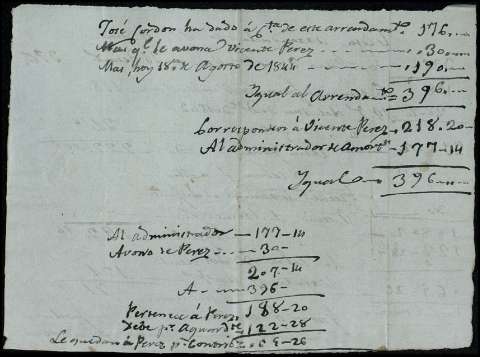 José Cordon ha dado á cta de este arrendamto. 176....
Mas qe. le avona Vicente Perez ..... 30....
Mas, hoy 18 de Agosto de 1841 ..... 190....
Igual al Arrendamto = 396....
Corresponden á Vicente Perez. 218.20-
Al administrador de Amortn. 177-14
Igual 396....
Al administrador - 177-14
Avono de Perez ... 30-
207-14
A 396-
Pertenece á Perez 188-20
Debe pr. 122-28
Le quedan á Perez pr.